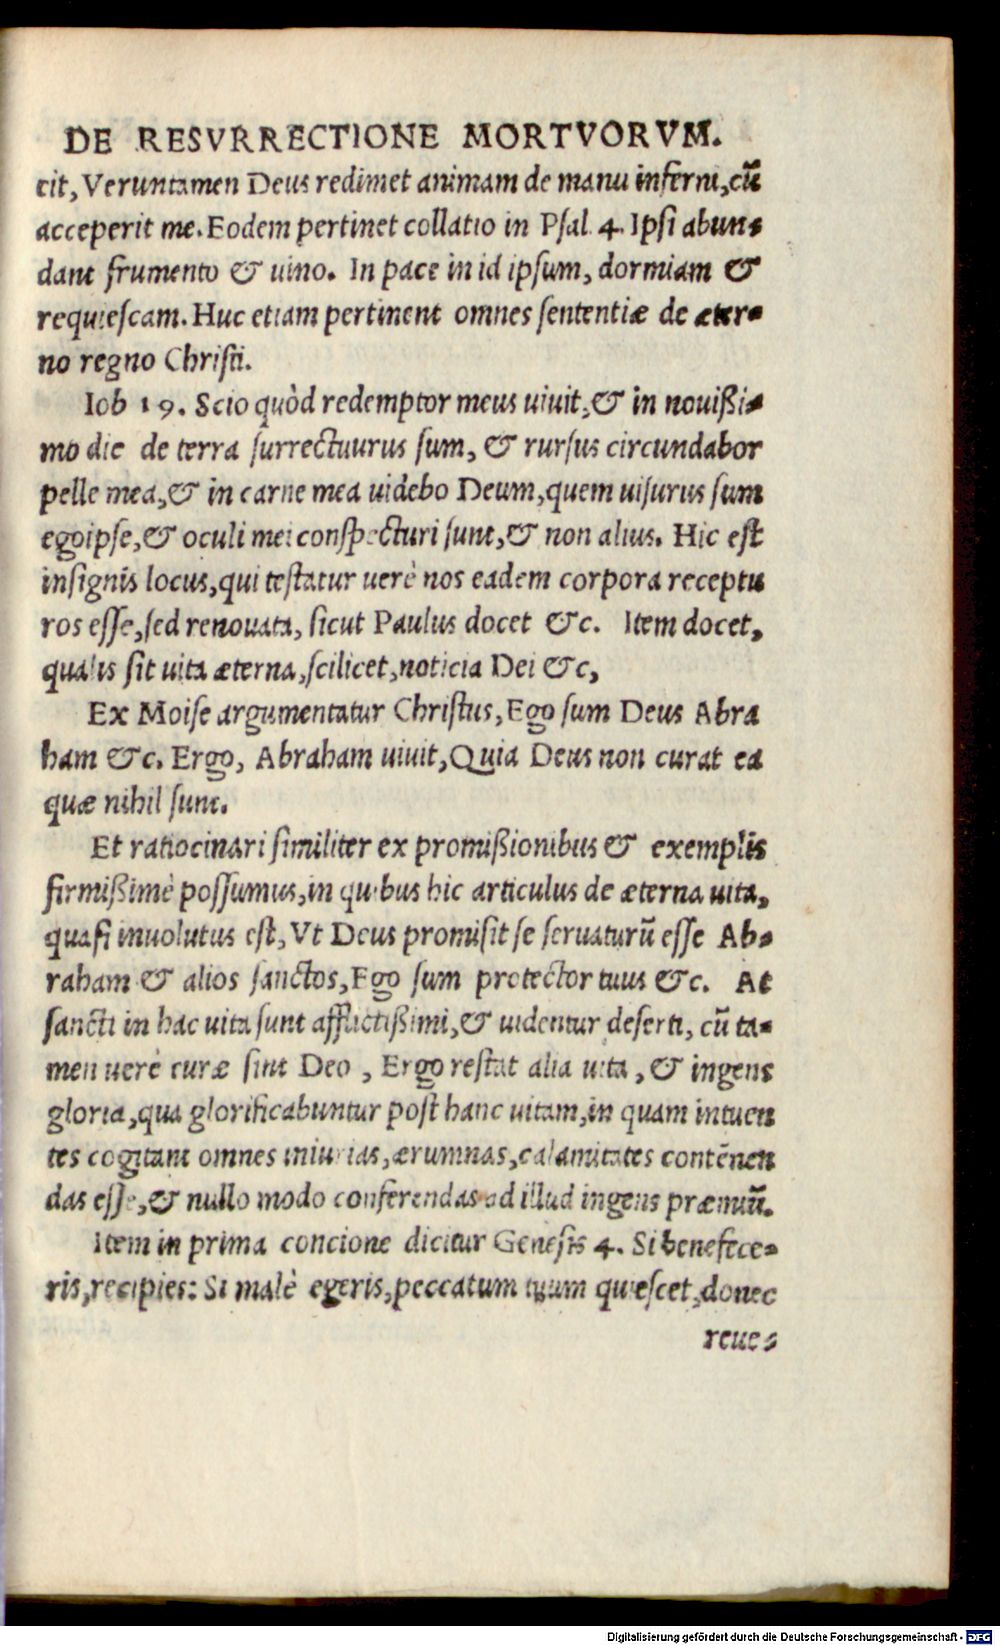 DE RESVRRECTIONE MORTVORVM.
cit, Veruntamen Deus redimet animam de manu inferni, cũ
acceperit me. Eodem pertinet collatio in Psal. 4. Ipsi abun-
dant frumento & uino. In pace in id ipsum, dormiam &
requiescam. Huc etiam pertinent omnes sententiæ de æter-
no regno Christi.
Iob 19. Scio quòd redemptor meus uiuit, & in nouißi-
mo die de terra surrectuurus sum, & rursus circundabor
pelle mea, & in carne mea uidebo Deum, quem uisurus sum
egoipse, & oculi mei conspecturi sunt, & non alius. Hic est
insignis locus, qui testatur uerè nos eadem corpora receptu
ros esse, sed renouata, sicut Paulus docet &c. Item docet,
qualis sit uita æterna, scilicet, noticia Dei &c,
Ex Moise argumentatur Christus, Ego sum Deus Abra
ham &c. Ergo, Abraham uiuit, Quia Deus non curat ea
quæ nihil sunt.
Et ratiocinari similiter ex promißionibus & exemplis
firmißimè possumus, in quibus hic articulus de æterna uita,
quasi inuolutus est, Vt Deus promisit se seruaturũ esse Ab-
raham & alios sanctos, Ego sum protector tuus &c. At
sancti in hac uita sunt afflictißimi, & uidentur deserti, cũ ta-
men uerè curæ sint Deo, Ergo restat alia uita, & ingens
gloria, qua glorificabuntur post hanc uitam, in quam intuen
tes cogitant omnes iniurias, ærumnas, calamitates contẽnen
das esse, & nullo modo conferendas ad illud ingens præmiũ.
Item in prima concione dicitur Genesis 4. Si benefece-
ris, recipies: Si malè egeris, peccatum tuum quiescet, donec
reue-
Digitalisierung gefördert durch die Deutsche Forschungsgemeinschaft - DFG